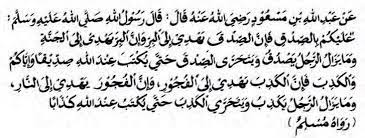 عَنْ عَبْدِ اللهِ بْنِ مَسْعُوْدٍ رَضِيَ اللهُ عَنْهُ قَالَ: قَالَ رَسُوْلُ اللهِ صَلَّى اللهُ عَلَيْهِ وَسَلَّمَ:
عَلَيْكُمْ بِالصِّدْقِ فَإِنَّ الصِّدْقَ يَهْدِيْ إِلَى الْبِرِّ وَإِنَّ الْبِرَّ يَهْدِيْ إِلَى الْجَنَّةِ
وَمَا يَزَالُ الرَّجُلُ يَصْدُقُ وَيَتَحَرَّى الصِّدْقَ حَتَّى يُكْتَبَ عِنْدَ اللهِ صِدِّيْقًا وَإِيَّاكُمْ
وَالْكَذِبَ فَإِنَّ الْكَذِبَ يَهْدِيْ إِلَى الْفُجُوْرِ، وَإِنَّ الْفُجُوْرَ يَهْدِيْ إِلَى النَّارِ،
وَمَا يَزَالُ الرَّجُلُ يَكْذِبُ وَيَتَحَرَّى الْكَذِبَ حَتَّى يُكْتَبَ عِنْدَ اللهِ كَذَّابًا
(رَوَاهُ مُسْلِمٌ)